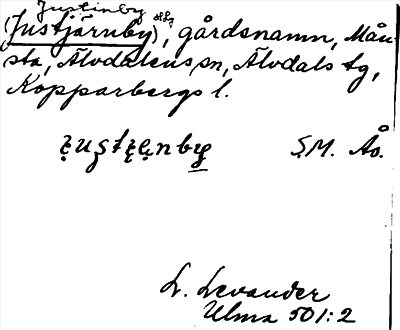 Justinby
(Justjärnby), gårdsnamn, Mån-
sta, Älvdalens sn, Älvdals tg,
Kopparbergs l.
S.M. Åo.
L. Levander
Ulma 501:2